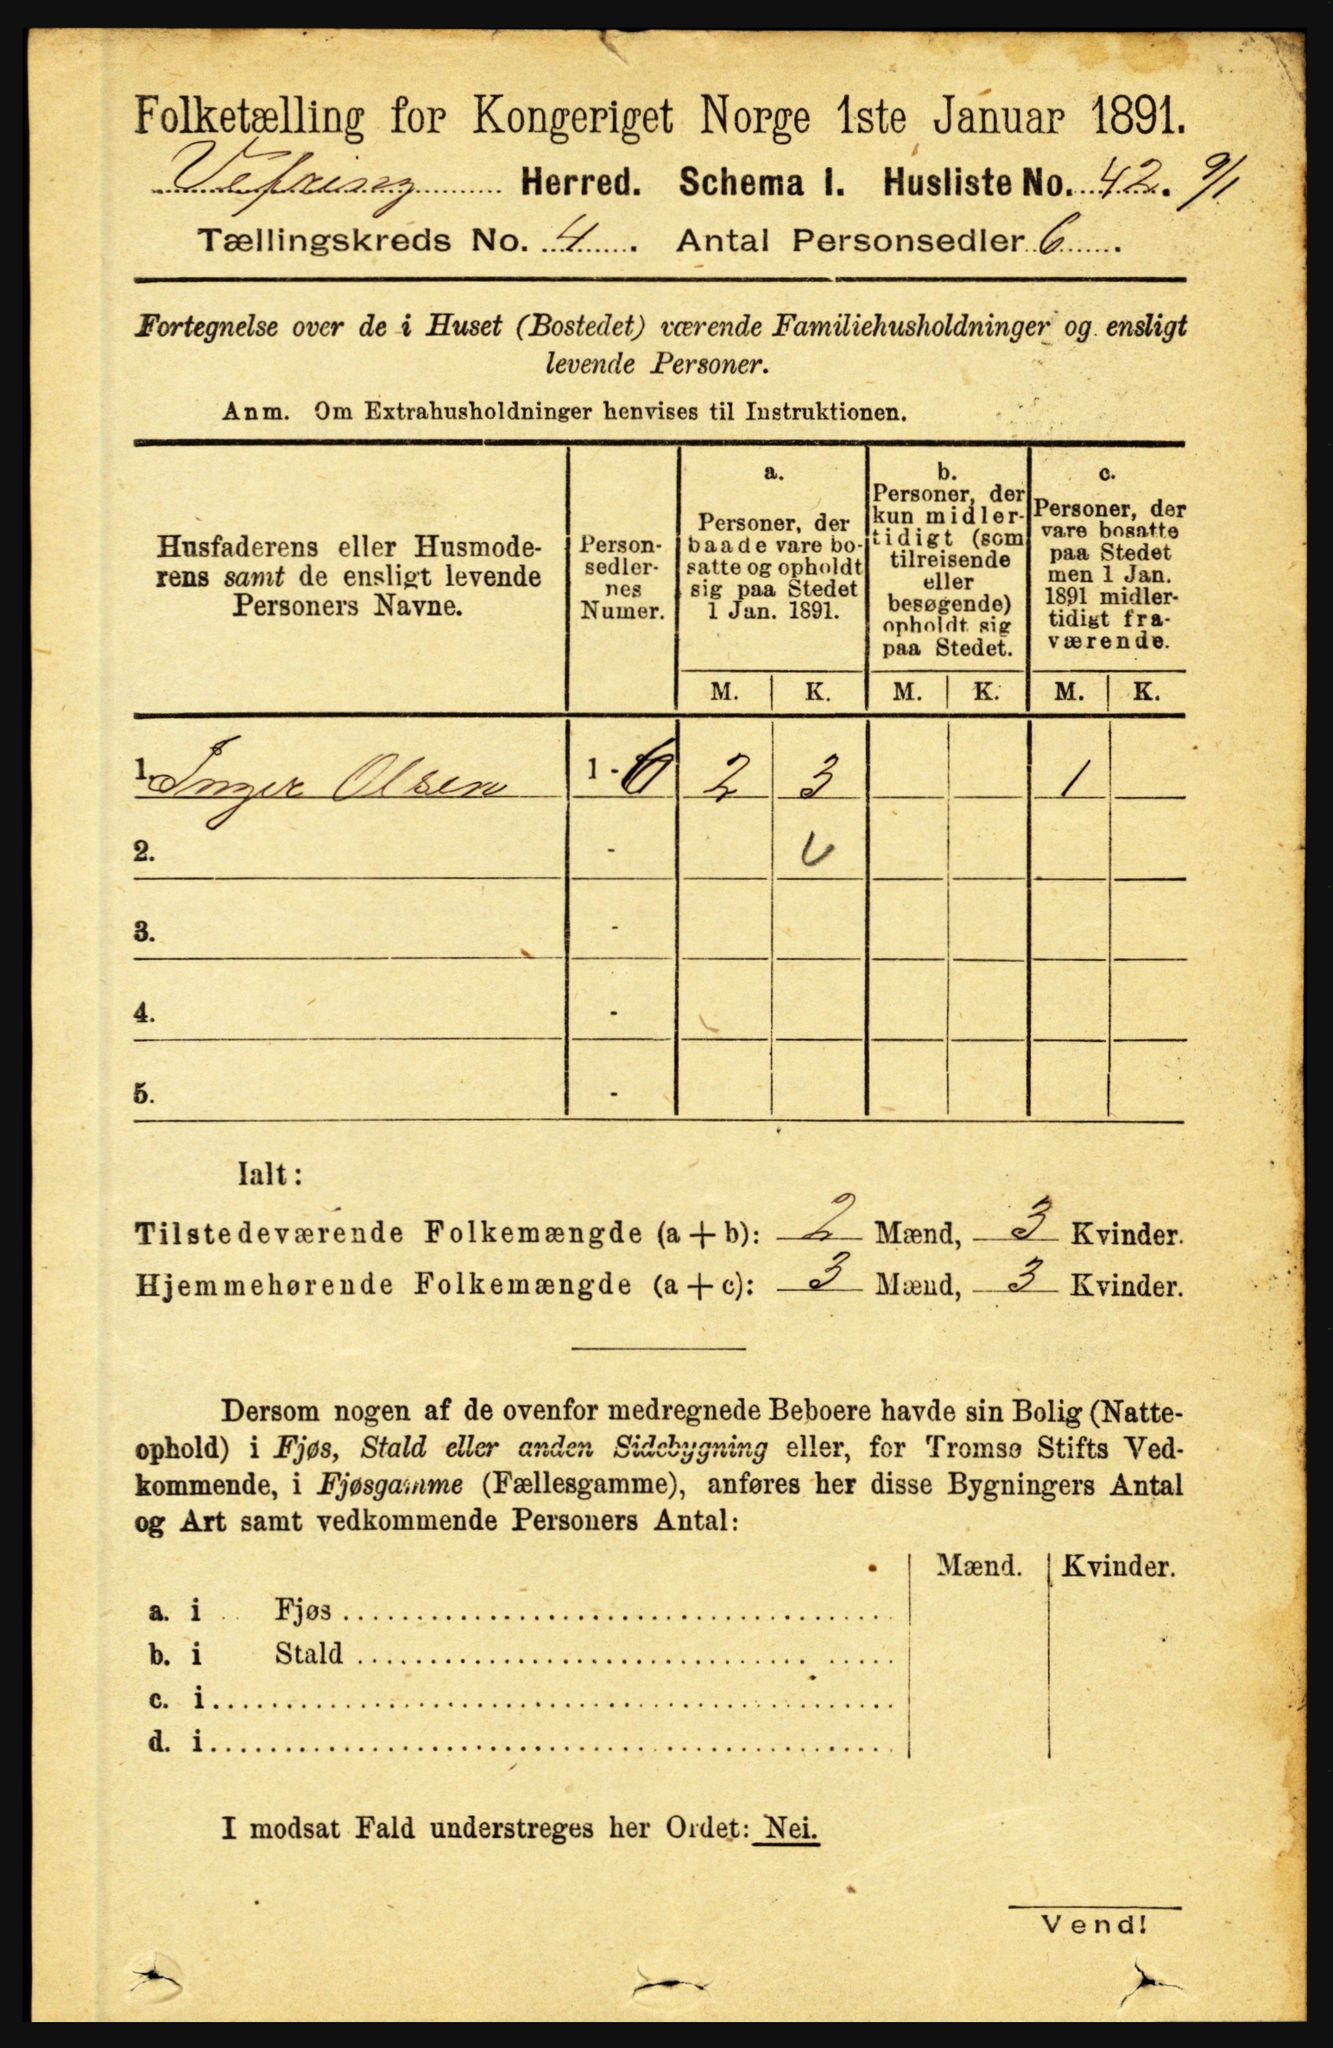 Folketælling for Kongeriget Norge 1ste Januar 1891.
Vefring Herred. Schema I. Husliste No. 42. 9/1
Tællingskreds No. 4. Antal Personsedler 6.
Fortegnelse over de i Huset (Bostedet) værende Familiehusholdninger og ensligt
levende Personer.
Anm. Om Extrahusholdninger henvises til Instruktionen.
Husfaderens eller Husmode-
rens samt de ensligt levende
Personers Navne.
Person-
sedler-
nes
Numer.
a.
Personer, der
baade vare bo-
satte og opholdt
sig paa Stedet
1 Jan. 1891.
b.
Personer, der
kun midler-
tidigt (som
tilreisende
eller
besøgende)
opholdt sig
paa Stedet.
c.
Personer, der
vare bosatte
paa Stedet
men 1 Jan.
1891 midler-
tidigt fra-
værende.
M. K. M. K. M. K.
1. Inger Olsen 1 - 6 2 3 1
2. -
3. -
4. -
5. -
Ialt:
Tilstedeværende Folkemængde (a + b): 2 Mænd, 3 Kvinder.
Hjemmehørende Folkemængde (a + c): 3 Mænd, 3 Kvinder.
Dersom nogen af de ovenfor medregnede Beboere havde sin Bolig (Natte-
ophold) i Fjøs, Stald eller anden Sidebygning eller, for Tromsø Stifts Ved-
kommende, i Fjøsgamme (Fællesgamme), anføres her disse Bygningers Antal
og Art samt vedkommende Personers Antal:
Mænd. Kvinder.
a. i Fjøs
b. i Stald
c. i
d. i
I modsat Fald understreges her Ordet: Nei.
Vend!